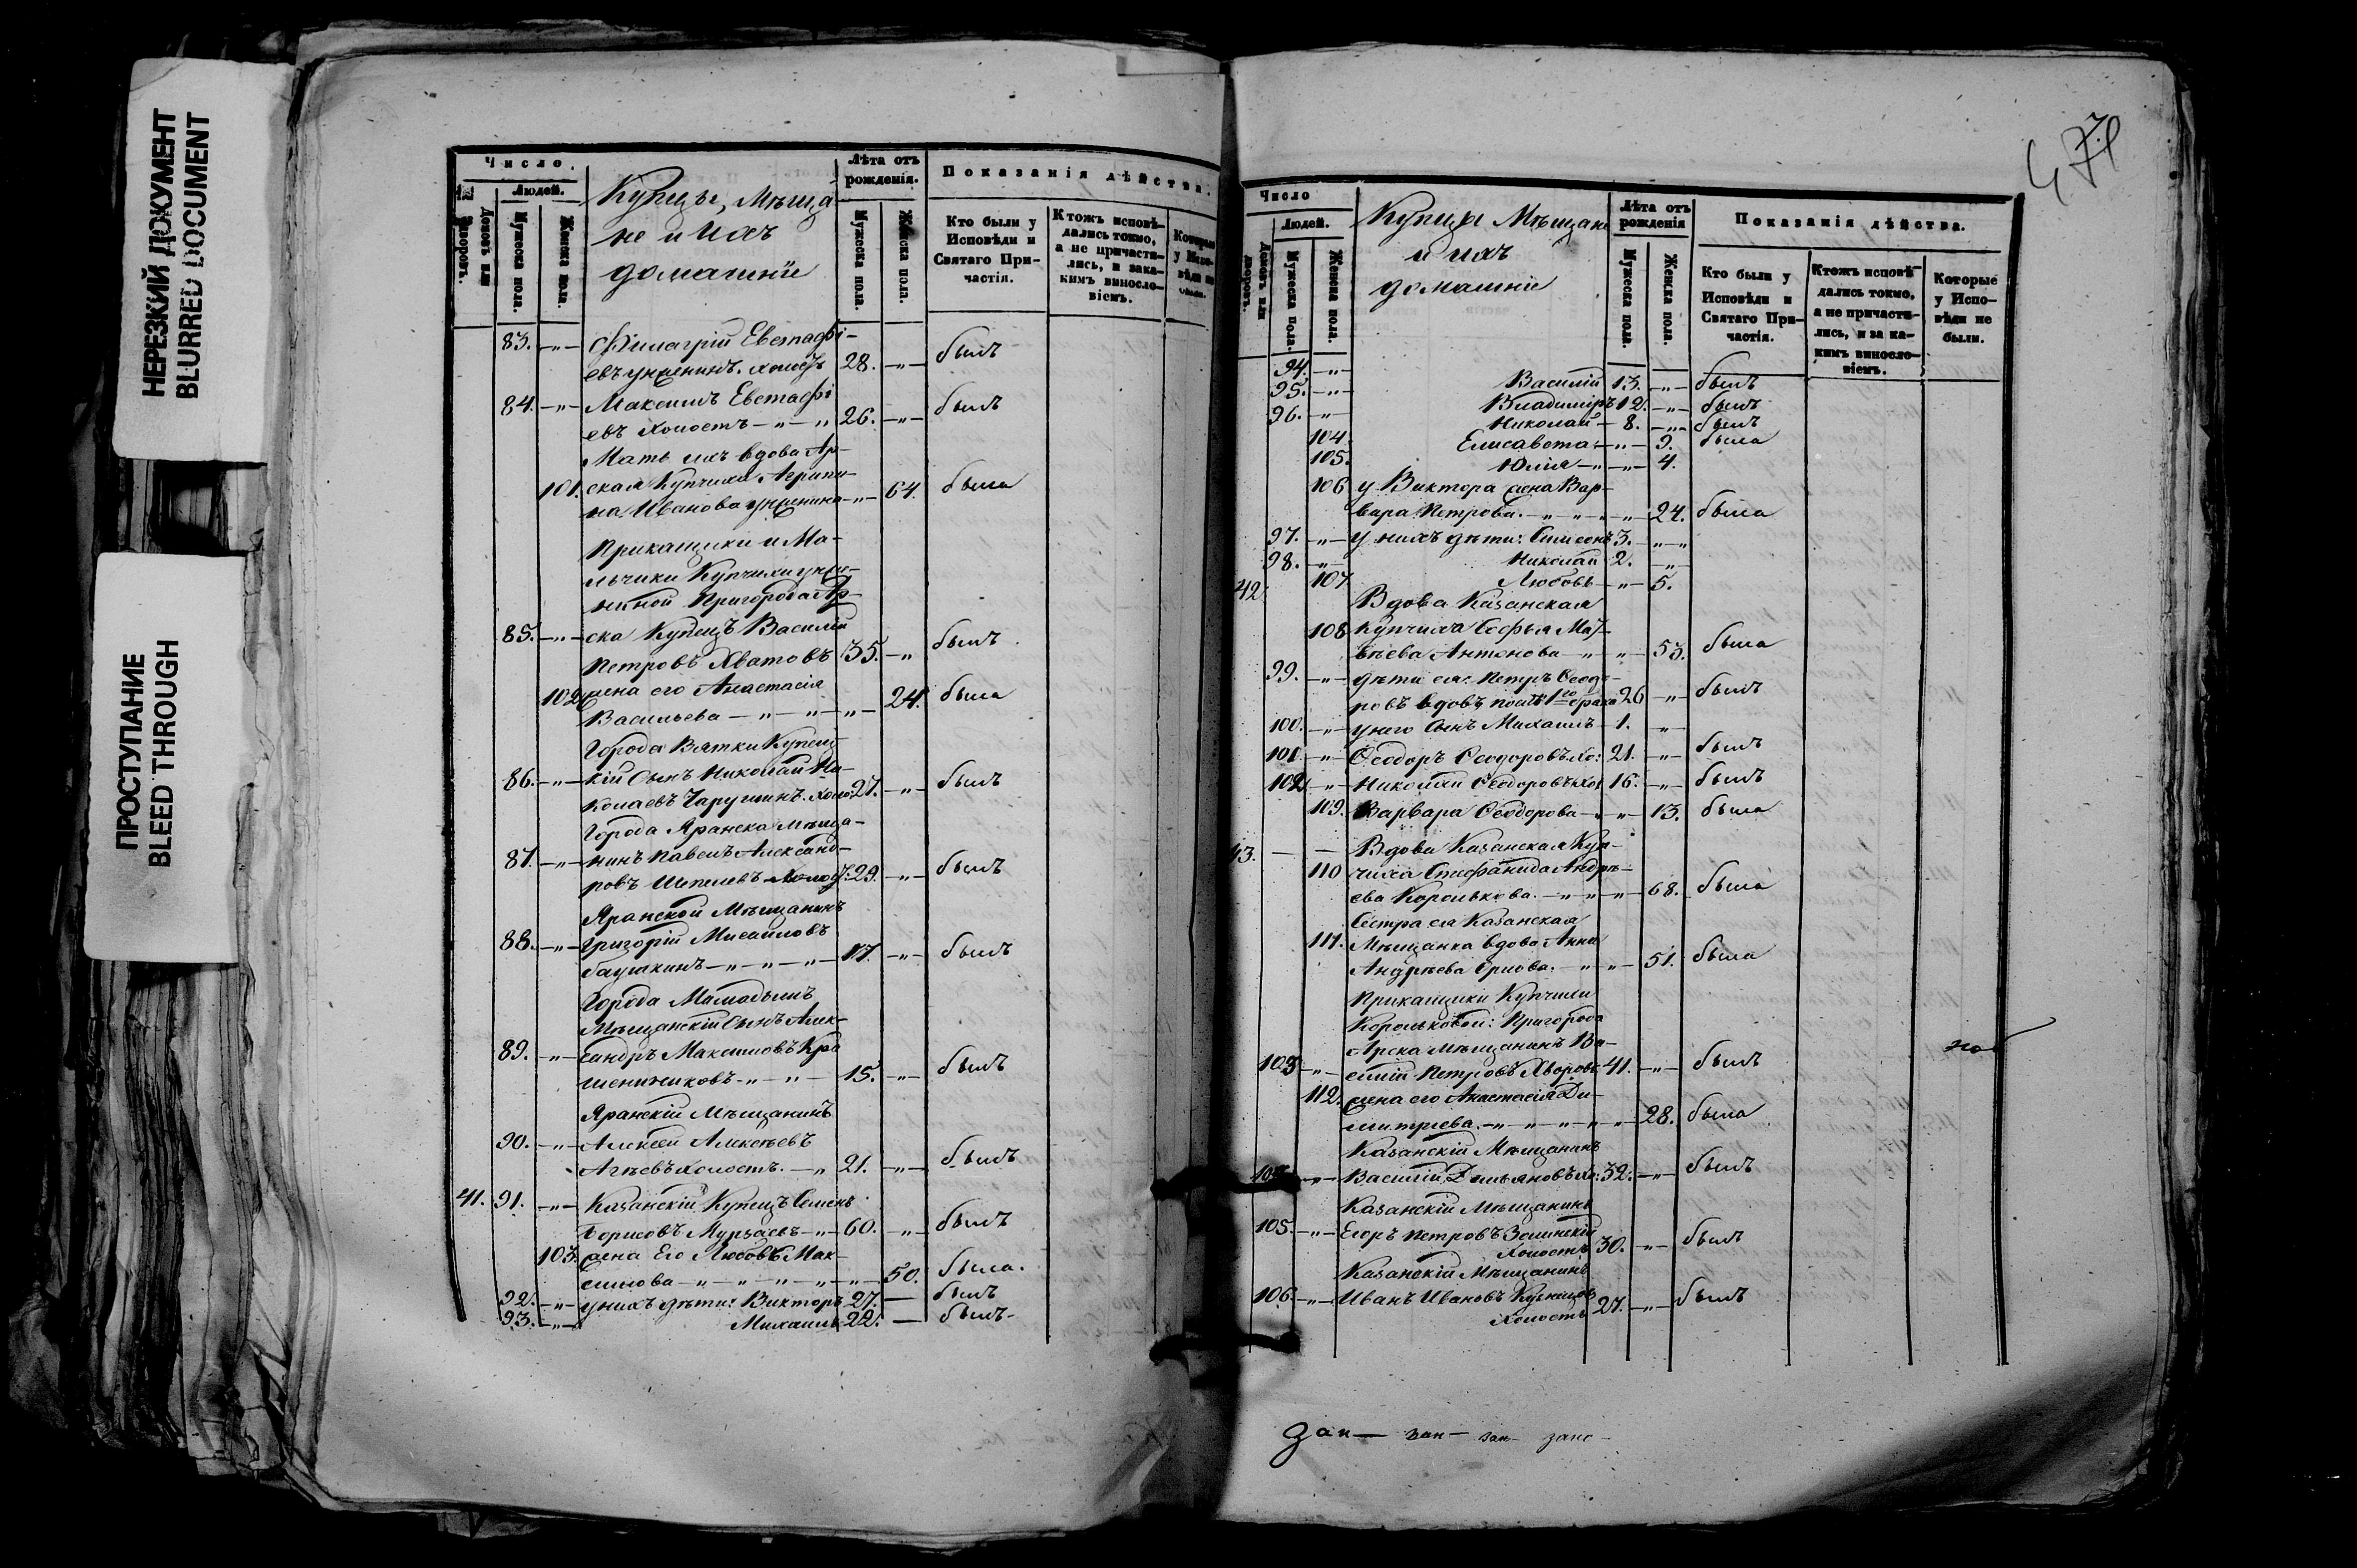 НЕРЕЗКИЙ ДОКУМЕНТ
BLURRED DOCUMENT
ПРОСТУПАНИЕ
BLEED THROUGH
Число.
Людей.
Домовъ или дворовъ.
Мужеска пола.
Женска пола.
Купцы, Мѣща-
не и ихъ
домашніе
Лѣта отъ рожденія.
Мужеска пола.
Женска пола.
Показанія дѣйства.
Кто были у Исповѣди и Святаго Причастія.
Ктожъ исповѣдались токмо, а не причастились, и за какимъ винословіемъ.
83. —"— Филагрій Евстафі-
евъ холостъ 28. —"— былъ
84. —"— Максимъ Евстафі
евъ Холостъ —"—" 26. —"— былъ
Мать ихъ вдова Ар-
101. ская Купчиха Агрипи-
на Иванова —"— 64. была
Прикащики и Ма-
льчики Купчихи
Пригорода Ар-
85. —"— ска Купецъ Василій
Петровъ Хватовъ 35. —" былъ
102 жена его Анастасія
Васильева —"—"—"— 24. была
Города Вятки Купец-
86. —"— кій Сынъ Николай Ни-
колаевъ Чарушинъ. Холо 27. —"— былъ
Города Яранска Мѣща-
87. —"— нинъ Павелъ Александ-
ровъ Шепелевъ Холос: 29. —"— былъ
Яранской Мѣщанинъ
88. —"— Григорій Мисаиловъ
баушкинъ —"—"—"— 17. —"— былъ
Города Мамадышъ
Мѣщанскій Сынъ Алек-
89. —"— сандръ Максимовъ Кра
шениниковъ —"—"— 15. —"— былъ
Яранскій Мѣщанинъ
90. —"— Алексѣй Алексѣевъ
Агѣевъ холостъ. —" 21. —"— былъ
41. 91. —"— Казанскій Купецъ Семенъ
Борисовъ Мурзаевъ —"— 60. —"— былъ
103 жена Его Любовь Мак-
симова —"—"—"—"—"— 50. была.
92. —"— у нихъ дѣти: Викторъ 27. — былъ
93. —"— Михаилъ 22. — былъ
Число
Людей.
Домовъ или дворовъ.
Мужеска пола.
Женска пола.
Купцы Мѣщане
и ихъ
домашніе
Лѣта отъ рожденія
Мужеска пола.
Женска пола.
Показанія дѣйства.
Кто были у Исповѣди и Святаго Причастія.
Ктожъ исповѣдались токмо, а не причастились, и за какимъ винословіемъ.
Которые у Исповѣди не были.
94. —"— Василій 13. —"— былъ
95. —"— Владиміръ 12. —"— былъ
96. —"— Николай — 8. —"— былъ
104. Елисавета —"— 9. была
105. Юлія —"—"— 4.
106 у Виктора жена Вар-
вара Петрова. —"—"—"— 24. была
97. —"— у нихъ дѣти: Симеонъ 3. —"—"
98. —"— Николай 2. —"—
107 Любовь —"— 5.
42 Вдова Казанская
108 Купчиха Софья Мат-
вѣева Антонова —"—"— 53. была
99. —"— дѣти ея: Петръ Ѳеодо-
ровъ вдовъ послѣ 1го брака 26 —"— былъ
100. —"— у него Сынъ Михаилъ — 1. —"—
101 —"— Ѳеодоръ Ѳеодоровъ Хо: 21. —"— былъ
102 —"— Николай Ѳеодоровъ Хол 16. —"— былъ
109. Варвара Ѳеодорова —"—"— 13. была
43. — — Вдова Казанская Куп-
110 чиха Епифанида Андрѣ-
ева Королькова. —"—"—"— 68. была
Сестра ея Казанская
111. Мѣщанка вдова Анна
Андрѣева Орлова. —"—"— 51. была
Прикащики Купчихи
Корольковой: Пригорода
Арска Мѣщанинъ Ва-
103 —"— силій Петровъ 41. —"— былъ
112. жена его Анастасія Ди-
митріева. —"—"—"—"— 28. была
Казанскій Мѣщанинъ
—"— Василій Демьяновъ Хо: 32. —"— былъ
Казанскій Мѣщанинъ
105. —"— Егоръ Петровъ
Холостъ 30. —"— былъ
Казанскій Мѣщанинъ
106. —"— Иванъ Ивановъ
Холостъ 27. —"— былъ
зап— зап— зап— запс—